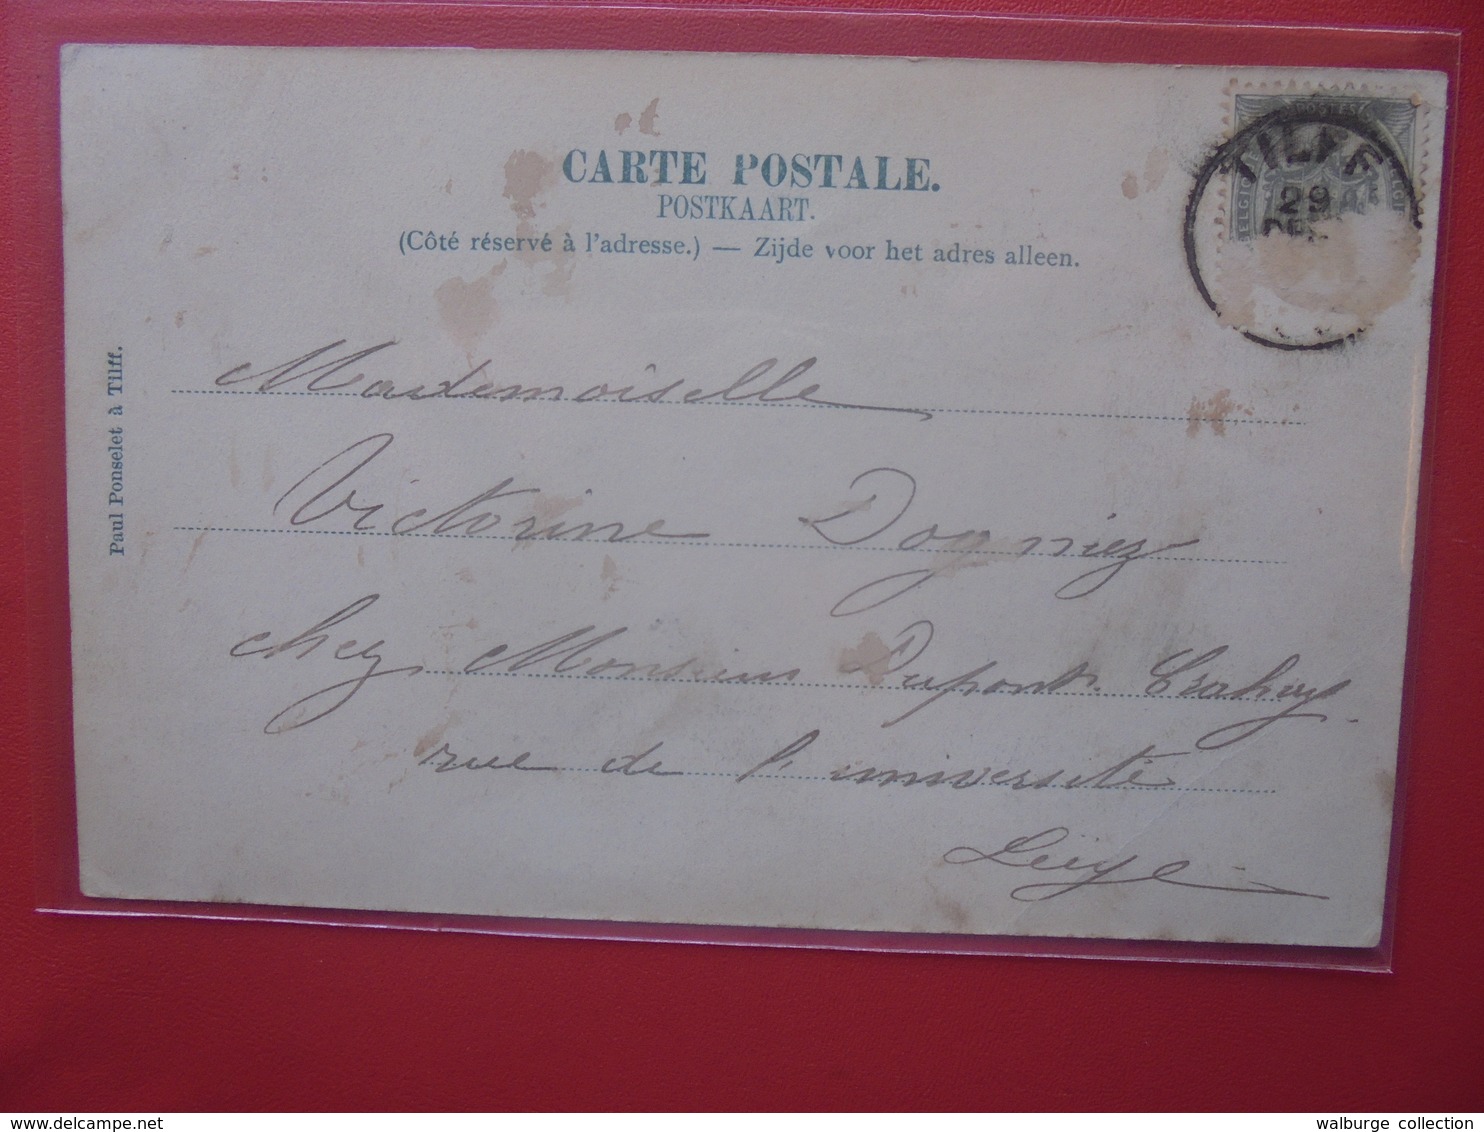 CARTE POSTALE.
POSTKAART.
(Côté réservé à l'adresse.) — Zijde voor het adres alleen.
POSTES
TILFF
29
Paul Ponselet à Tilff.
Mademoiselle
Victorine Dogniez
chez Monsieur Dupont
rue de l'université
Liège
delcampe.net
walburge collection